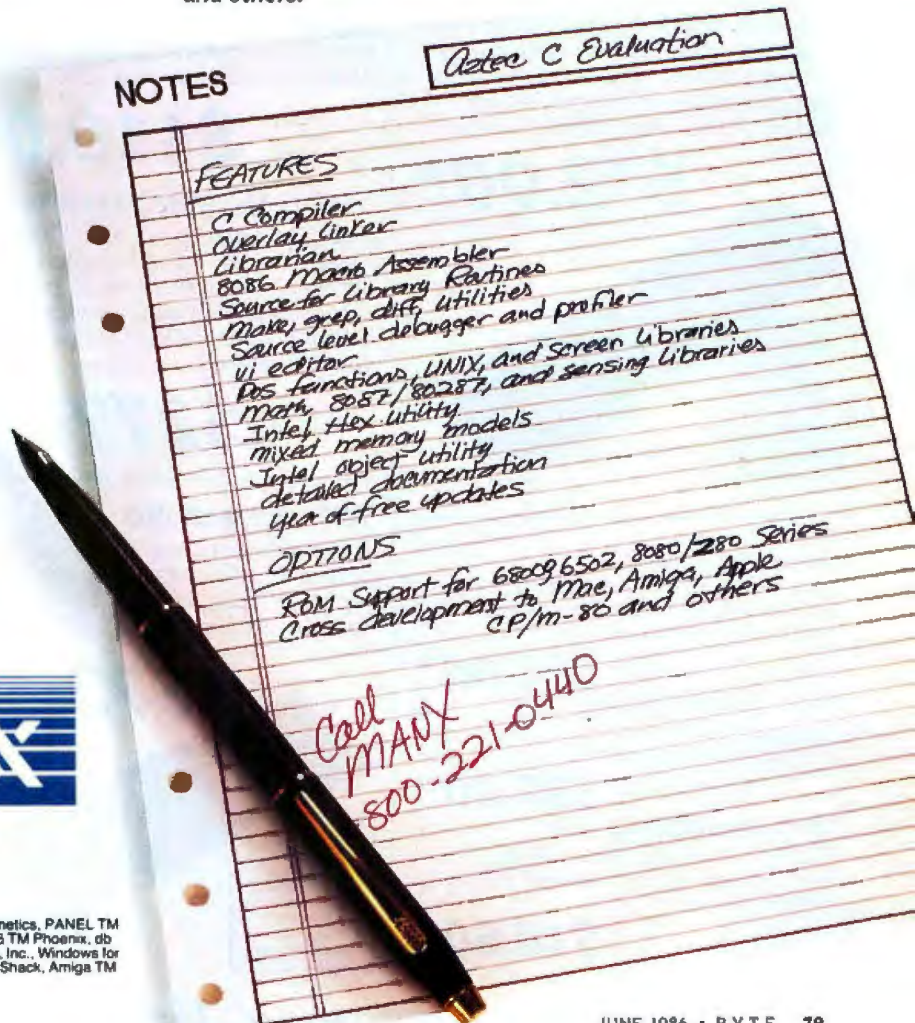 and others.
NOTES
Aztec C Evaluation
FEATURES
C Compiler
overlay linker
Librarian
8086 Macro Assembler
Source for Library Routines
make, grep, diff, utilities
Source level debugger and profiler
vi editor
Dos functions, UNIX, and Screen Libraries
math, 8087/80287, and sensing libraries
Intel Hex utility
mixed memory models
Intel object utility
detailed documentation
year of free updates
OPTIONS
ROM Support for 68009 6502, 8080/Z80 Series
Cross development to Mac, Amiga, Apple
CP/m-80 and others
Call
MANX
800-221-0440
X
netics, PANEL TM
TM Phoenix, db
, Inc., Windows for
Shack, Amiga TM
JUNE 1986 • BYTE 79